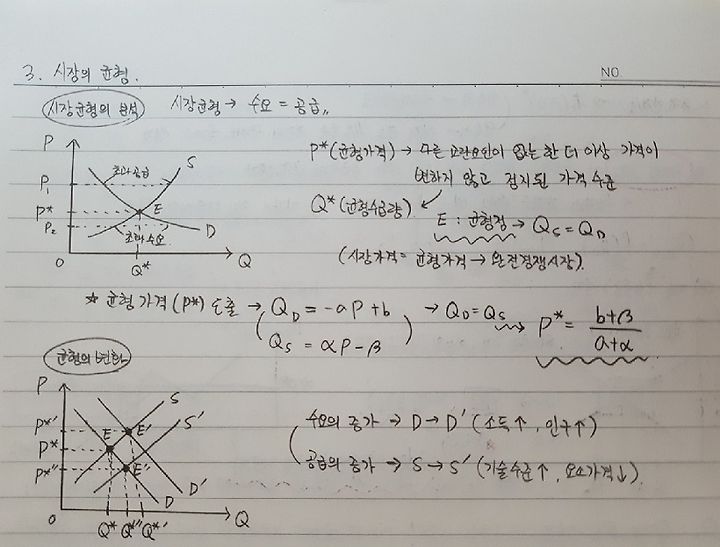 NO
3. 시장의 균형.
시장균형의 분석 시장균형 → 수요 = 공급,,
P
S
P₁
초과공급
P*
E
P₂
초과수요
D
O
Q*
Q
P*(균형가격) → 다른 교란요인이 없는 한 더 이상 가격이
변하지 않고 정지된 가격 수준
Q*(균형수급량)
E : 균형점 → Qs = QD
(시장가격 = 균형가격 → 완전경쟁시장).
* 균형가격(P*) 도출 → QD = -aP+b → QD = Qs → P* = b+β / a+α
Qs = αP-β
균형의 변화
P
S
S'
P*'
E'
P*
E
P*''
E'
D
D'
O
Q* Q*'' Q*'
Q
수요의 증가 → D → D' (소득↑, 인구↑)
공급의 증가 → S → S' (기술수준↑, 요소가격↓).